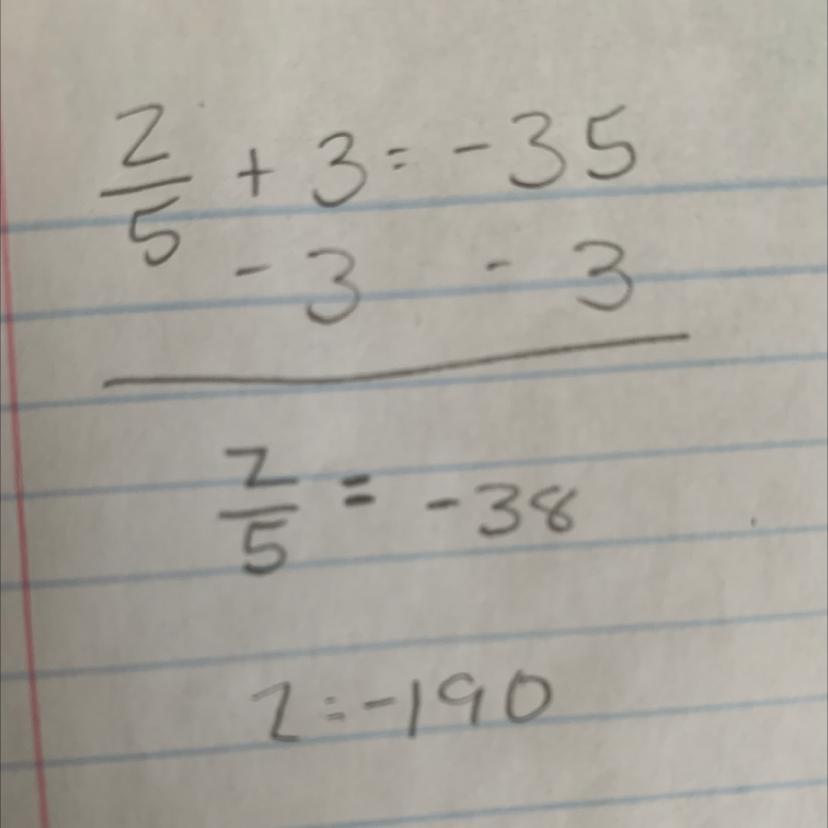 z/5 + 3 = -35
- 3 - 3
z/5 = -38
z = -190